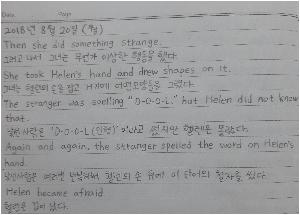 Date Page
2018년 8월 20일 (월)
Then she did something strange.
그리고 나서 그녀는 무언가 이상한 행동을 했다.
She took Helen's hand and drew shapes on it.
그녀는 헬렌의 손을 잡고 거기에 어떤 모양들을 그렸다.
The stranger was spelling "D-O-O-L" but Helen did not know
that.
낯선 사람은 'D-O-O-L(인형)'이라고 썼지만 헬렌은 몰랐다.
Again and again, the stranger spelled the word on Helen's
hand.
낯선사람은 여러번 반복해서 헬렌의 손 위에 이 단어의 철자를 썼다.
Helen became afraid.
헬렌은 겁이 났다.